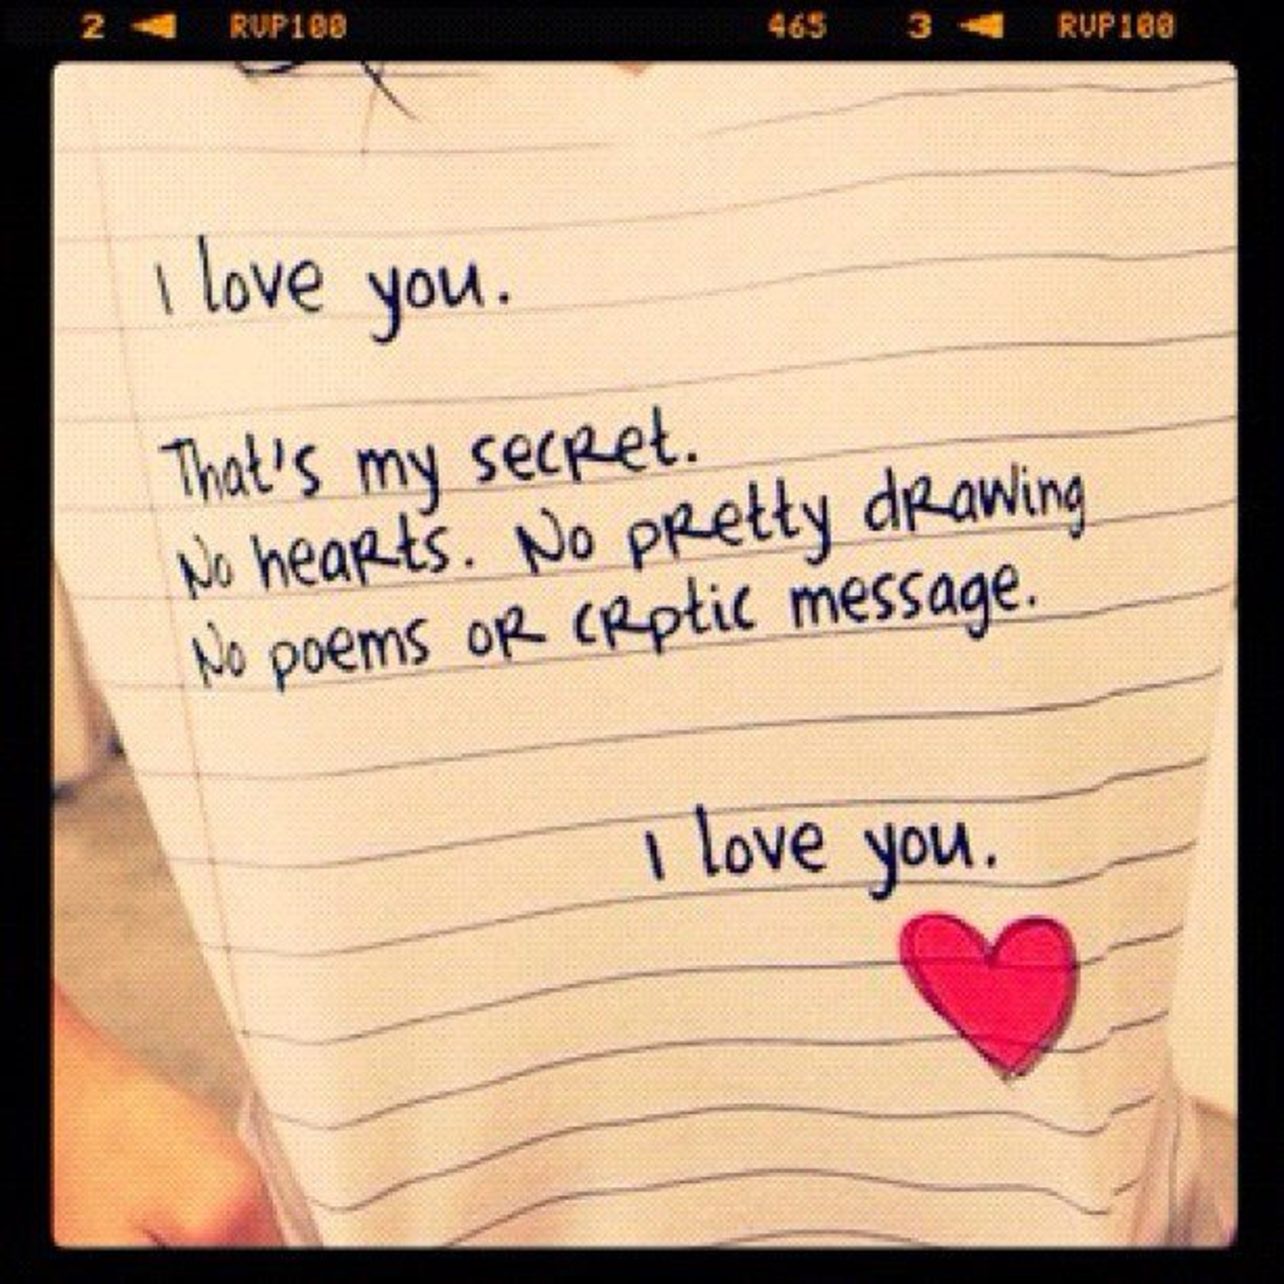 2 RVP100 465 3 RVP100
I love you.
That's my secret.
No hearts. No pretty drawing
No poems or crptic message.
I love you.